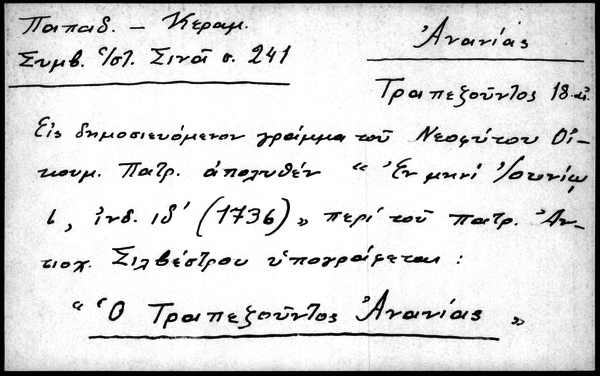 Παπαδ. – Κεραμ.
Συμβ. Ἱστ. Σινᾶ σ. 241
Ἀνανίας
Τραπεζοῦντος 18. αἰ.
Εἰς δημοσιευόμενον γράμμα τοῦ Νεοφύτου Οἰ-
κουμ. Πατρ. ἀπολυθέν " Ἐν μηνί Ἰουνίῳ
ι, ἰνδ. ιδ' (1736) „ περί τοῦ πατρ. Ἀν-
τιοχ. Σιλβέστρου ὑπογράφεται :
" Ὁ Τραπεζοῦντος Ἀνανίας „